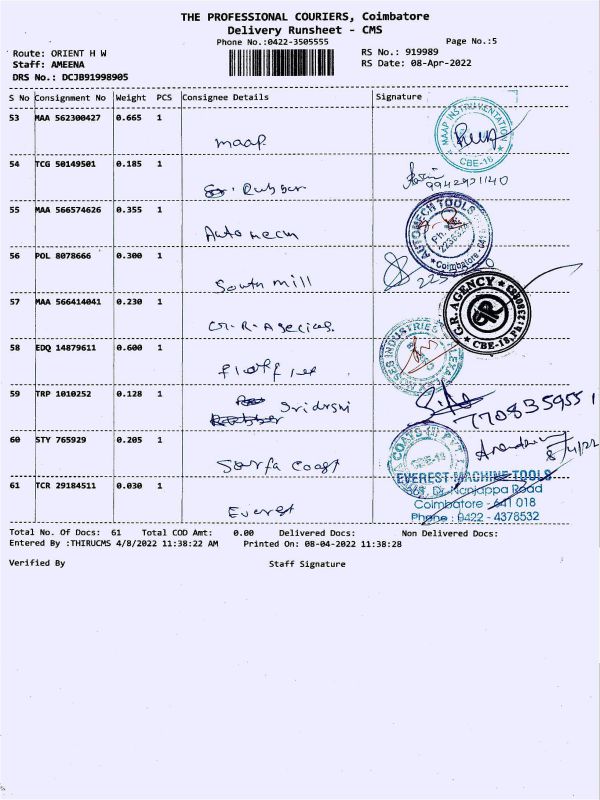 THE PROFESSIONAL COURIERS, Coimbatore
Delivery Runsheet - CMS
Phone No.:0422-3505555 Page No.:5
Route: ORIENT H W RS No.: 919989
Staff: AMEENA RS Date: 08-Apr-2022
DRS No.: DCJB91998905
S No Consignment No Weight PCS Consignee Details Signature
53 MAA 562300427 0.665 1
maap
MAAP INSTRUMENTATION
CBE-18
54 TCG 50149501 0.185 1
Rubber
9942921140
55 MAA 566574626 0.355 1
Automecn
AUTOMECH TOOLS
Coimbatore
56 POL 8078666 0.300 1
South mill
57 MAA 566414041 0.230 1
G.R. AGENCY
CBE-18
58 EDQ 14879611 0.600 1
MOSES INDUSTRIES
59 TRP 1010252 0.128 1
7708359551
60 STY 765929 0.205 1
Surfa Coast
COATS (I) PVT
8/4/22
61 TCR 29184511 0.030 1
Everest
EVEREST MACHINE TOOLS
Dr. Nanjappa Road
Coimbatore - 641 018
Phone : 0422 - 4378532
Total No. Of Docs: 61 Total COD Amt: 0.00 Delivered Docs: Non Delivered Docs:
Entered By :THIRUCMS 4/8/2022 11:38:22 AM Printed On: 08-04-2022 11:38:28
Verified By Staff Signature